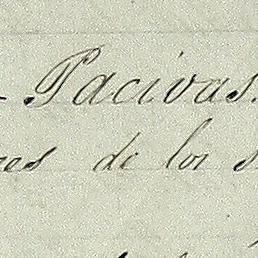 - Pacivas.
nes de los s